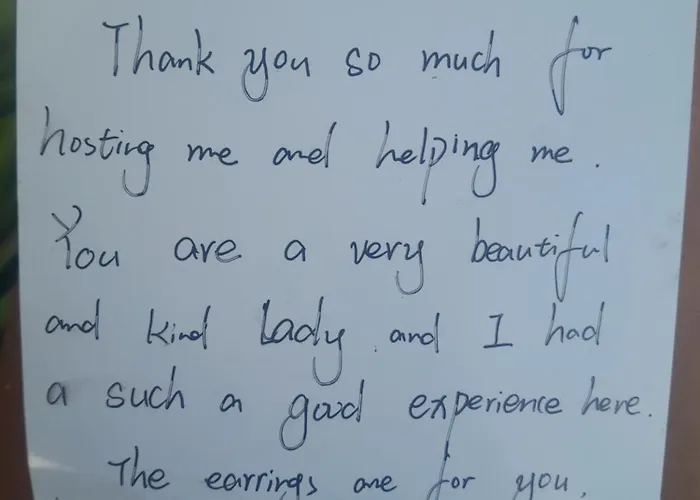 Thank you so much for
hosting me and helping me.
You are a very beautiful
and kind lady. and I had
a such a good experience here.
The earrings are for you.